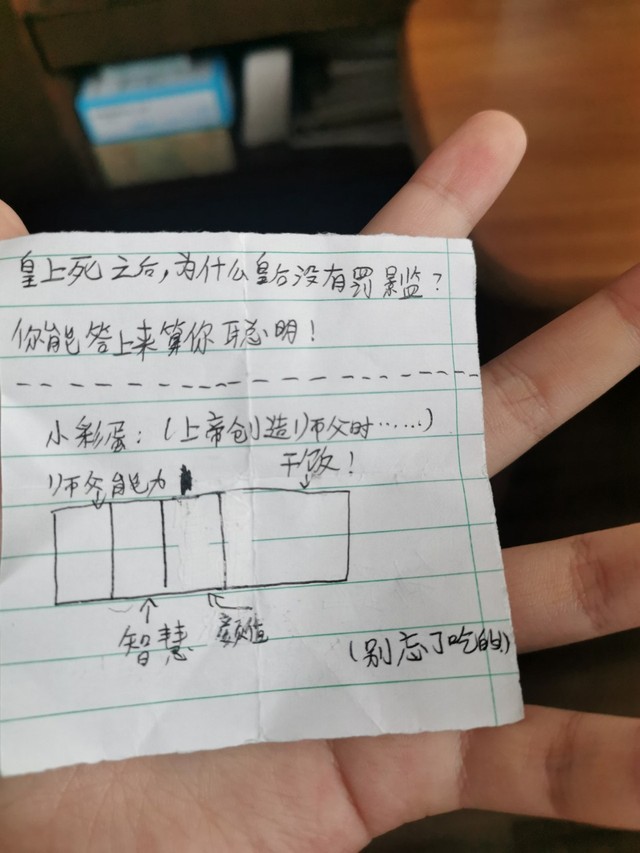 皇上死之后，为什么皇后没有罚景监？
你能答上来算你聪明！
小彩蛋：（上帝创造师父时……）
师父能力
干饭！
智慧
颜值
（别忘了吃的！）